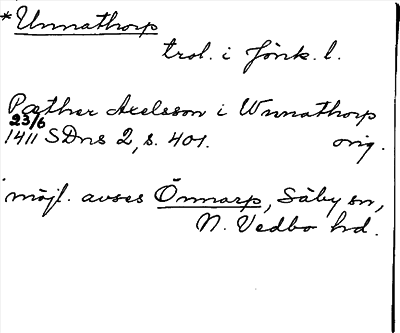 *Unnathorp
trol. i Jönk. l.
Pæther Axelsson i Wnnathorp
23/6
1411 SDns 2, s. 401. orig.
möjl. avses Önnarp, Säby sn,
N. Vedbo hd.